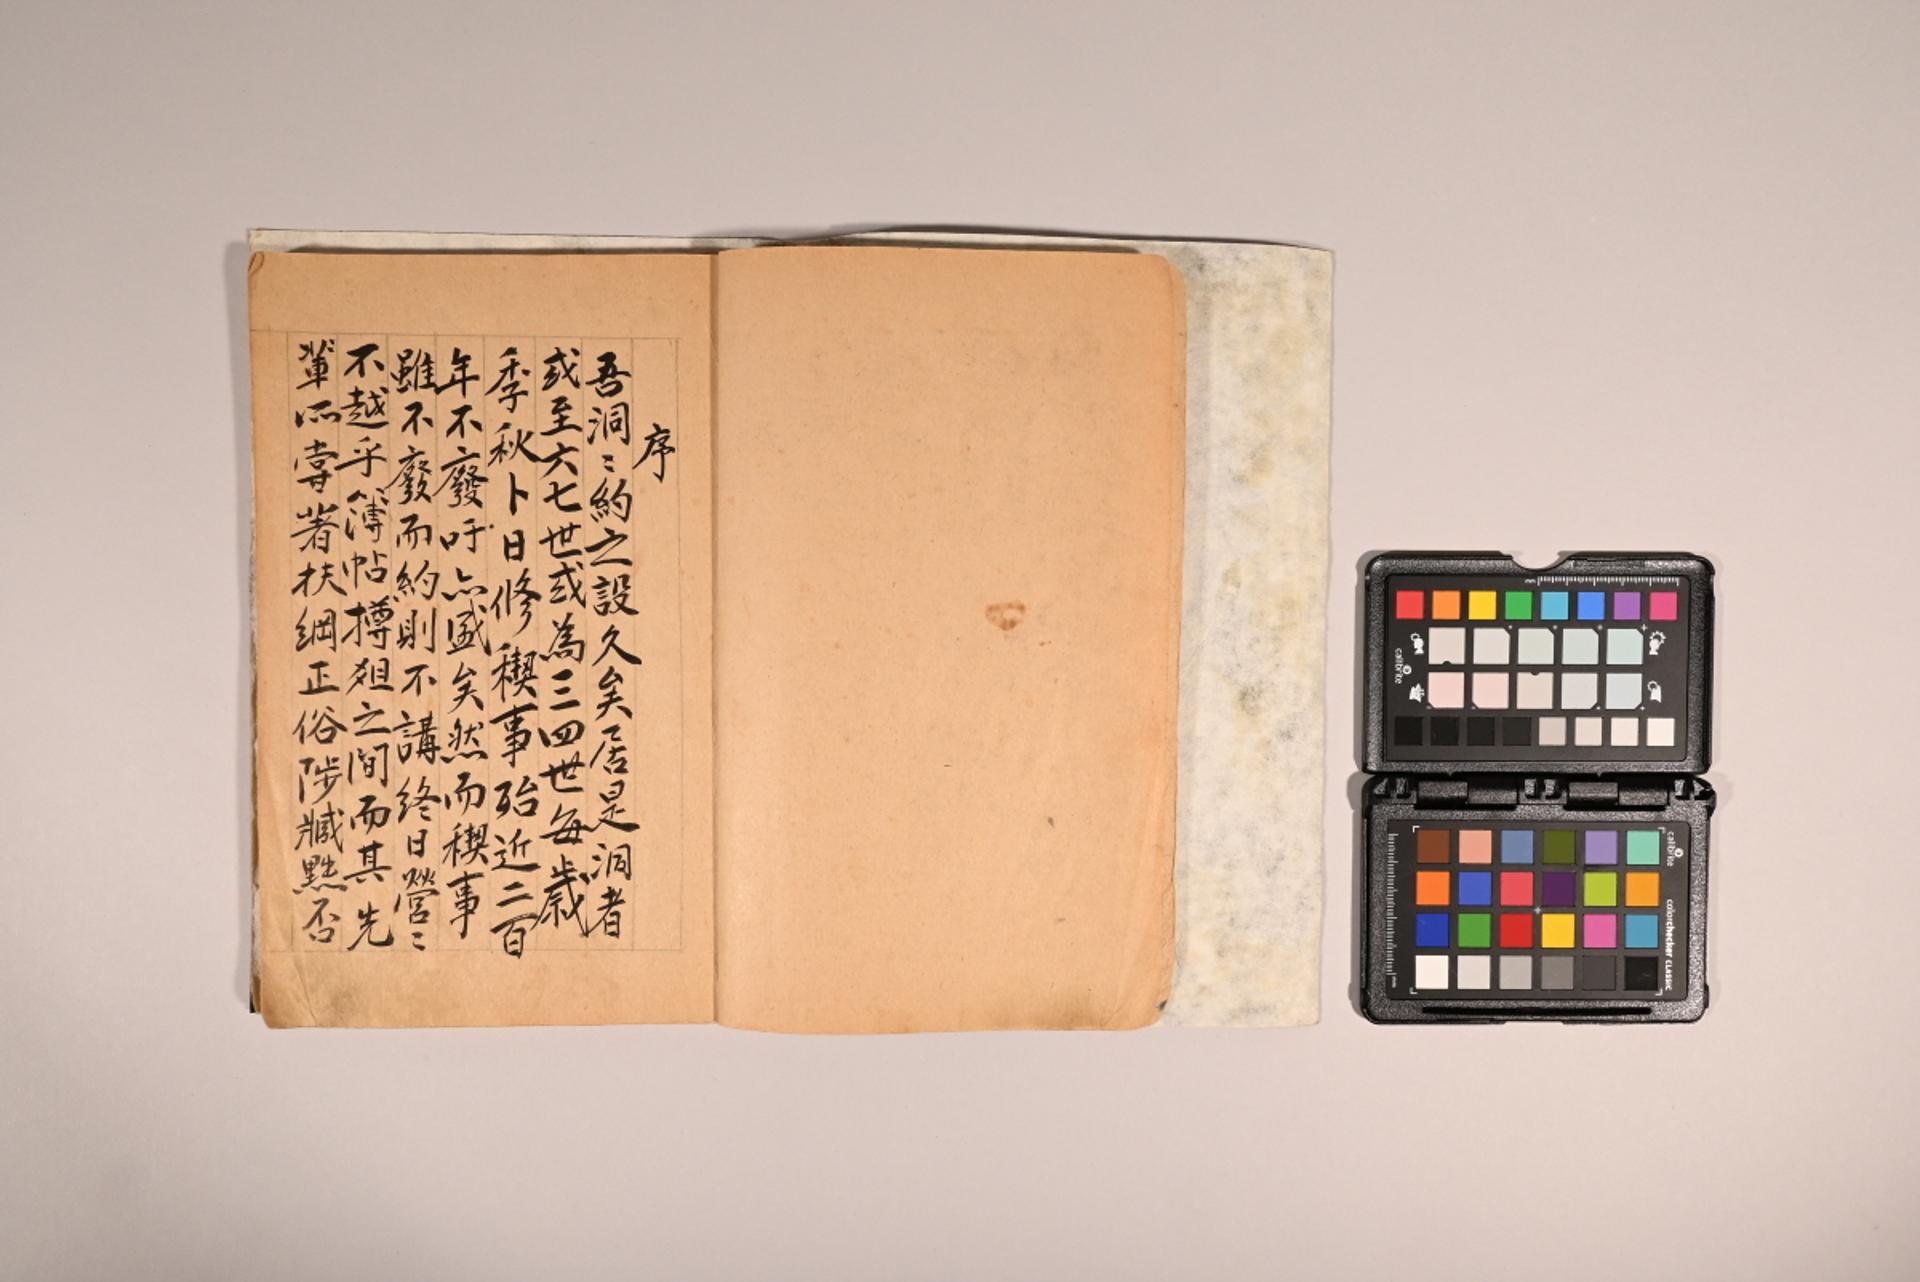 序
吾洞〻約之設久矣居是洞者
或至六七世或為三四世每歲
季秋卜日修稧事殆近二百
年不廢吁亦盛矣然而稧事
雖不廢而約則不講終日營〻
不越乎簿帖樽俎之間而其先
輩所嘗著扶綱正俗陟臧黜否
calibrite
calibrite
colorchecker CLASSIC